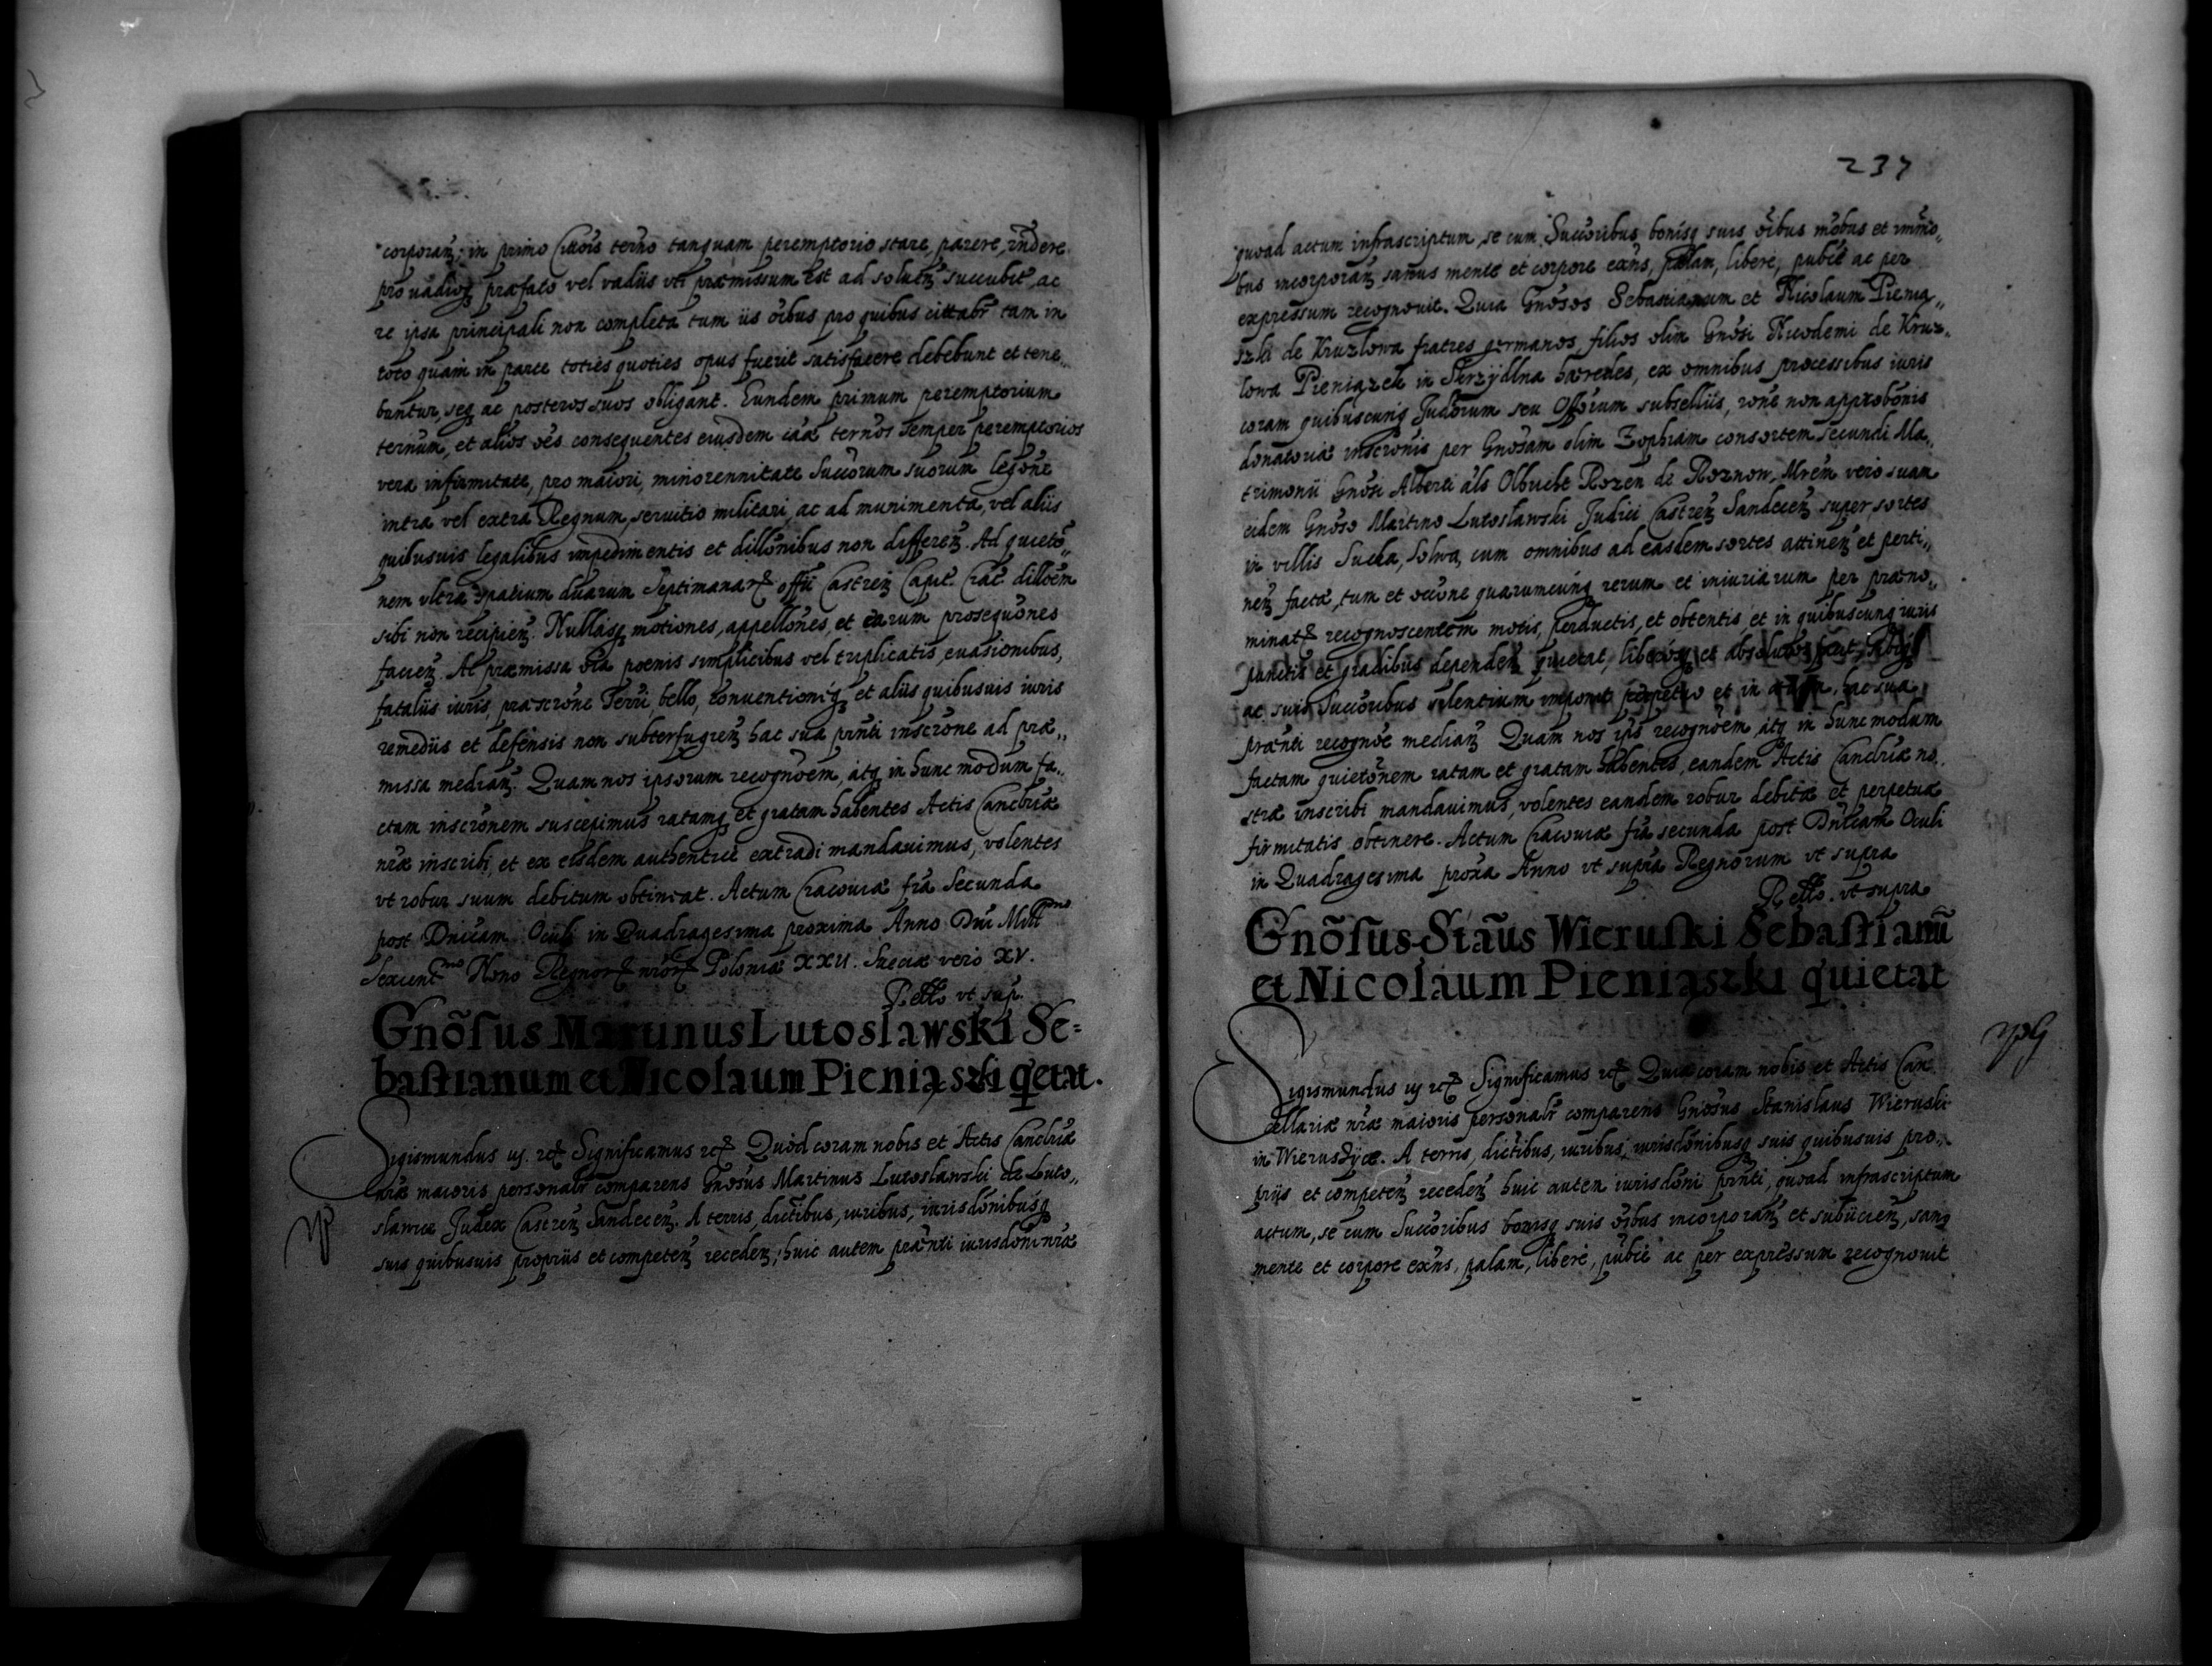 corporań: in primo Cittois termo tanquam peremptorio stare, parere, rñdere
pro uadioq præfato vel vadiis vti præmissum est ad soluen succubit ac
re ipsa principali non completa tum iis oibus pro quibus cittabr tam in
toto quam in parte toties quoties opus fuerit satisfacere debebunt et tene„
buntur, seq ac posteros suos obligant. Eundem primum peremptorium
terminum, et alios oes consequentes eiusdem cãæ ternos semper peremptorios
vera infirmitate, pro maiori, minorennitate Succorum suorum legone
intra vel extra Regnum, seruitio militari, ac ad munimenta, vel aliis
quibusuis legalibus impedimentis et dillonibus non differen. Ad quieto„
nem vltra spatium duarum Septimanarꝝ offii Castren Capit. Crac. dilloem
sibi non recipien. Nullasq motiones, appellones, et earum prosequones
facien. At præmissa oia poenis simplicibus vel triplicatis, euasionibus,
fataliis iuris, præscrone Terri bello, conuentioniq et aliis quibusuis iuris
remediis et defensis non subterfugien hac sua prnti inscrone ad præ„
missa median. Quam nos ipsorum recognoem, atq in hunc modum fa„
ctam inscronem suscepimus ratamq et gratam habentes Actis Cancellriæ
nræ inscribi, et ex eisdem authentice extradi mandauimus, volentes
vt robur suum debitum obtineat. Actum Cracouiæ fria Secunda
post Dnicam Oculi in Quadragesima proxima Anno Dni Mill̃mo
Sexcent̃mo Nono Regnorꝝ nrorꝝ Poloniæ XXII. Sueciæ vero XV.
Rello vt sup.
Gnõsus Martinus Lutosławski Se=
bastianum et Nicolaum Pieniąszki qetat.
Sigismundus iij. etc Significamus etc Quod coram nobis et Actis Cancellriæ
nræ maioris personalr comparens Gnosus Martinus Lutosławski de Luto„
slawice Judex Castren Sandecen. A terris, dictibus, iuribus, iurisdonibusq
suis quibusuis propriis et competen receden, huic autem prænti iurisdoni nræ
237
quoad actum infrascriptum se cum Succoribus bonisq suis oibus mobus et immo„
bus incorporań sanus mente et corpore exñs, palam, libere, publice ac per
expressum recognouit. Quia Gnosos Sebastianum et Nicolaum Pienią„
szki de Kruzlowa fratres germanos, filios olim Gnosi Nicodemi de Kruz„
lowa Pieniązek in Skrzÿdlna hæredes, ex omnibus processibus iuris
coram quibuscunq Judorum seu Offorum subselliis, rone non approbonis
donatoriæ inscronis per Gnosam olim Zophiam consortem secundi Ma„
trimonii Gnosi Alberti als Olbricht Rozen de Roznow, Mrem vero suam
eidem Gnoso Martino Lutosławski Judici Castren Sandecen super sortes
in villis Sucha, Solwa, cum omnibus ad easdem sortes attinen et perti„
nen facta, tum et occone quarumcunq rerum et iniuriarum per præno„
minatꝝ recognoscentem motis, perductis, et obtentis et in quibuscunq iuris
punctis et gradibus dependen quietat, liberosq et absolutos facit, sibiq
ac suis Succoribus silentium imponit perpetuo et in æuum, hac sua
prænti recogone median Quam nos ips recognoem, atq in hunc modum
factam quietonem ratam et gratam habentes, eandem Actis Cancelriæ no„
stræ inscribi mandauimus, volentes eandem robur debitæ et perpetuæ
firmitatis obtinere. Actum Cracouiæ fria secunda post Dnicam Oculi
in Quadragesima proxa Anno vt supra Regnorum vt supra
Rello. vt supra
Gnõsus Stãus Wieruski Sebastianũ
et Nicolaum Pieniąszki quietat
Sigismundus iij etc Significamus etc Quia coram nobis et Actis Can„
cellariæ nræ maioris personalr comparens Gnosus Stanislaus Wieruski
in Wierusÿce. A terris, dictibus, iuribus, iurisdonibusq suis quibusuis pro„
priis et competen receden huic autem iurisdoni prnti, quoad infrascriptum
actum, se cum Succoribus bonisq suis oibus incorporań et subiicien, sanq
mente et corpore exñs, palam, libere, publice ac per expressum recognouit